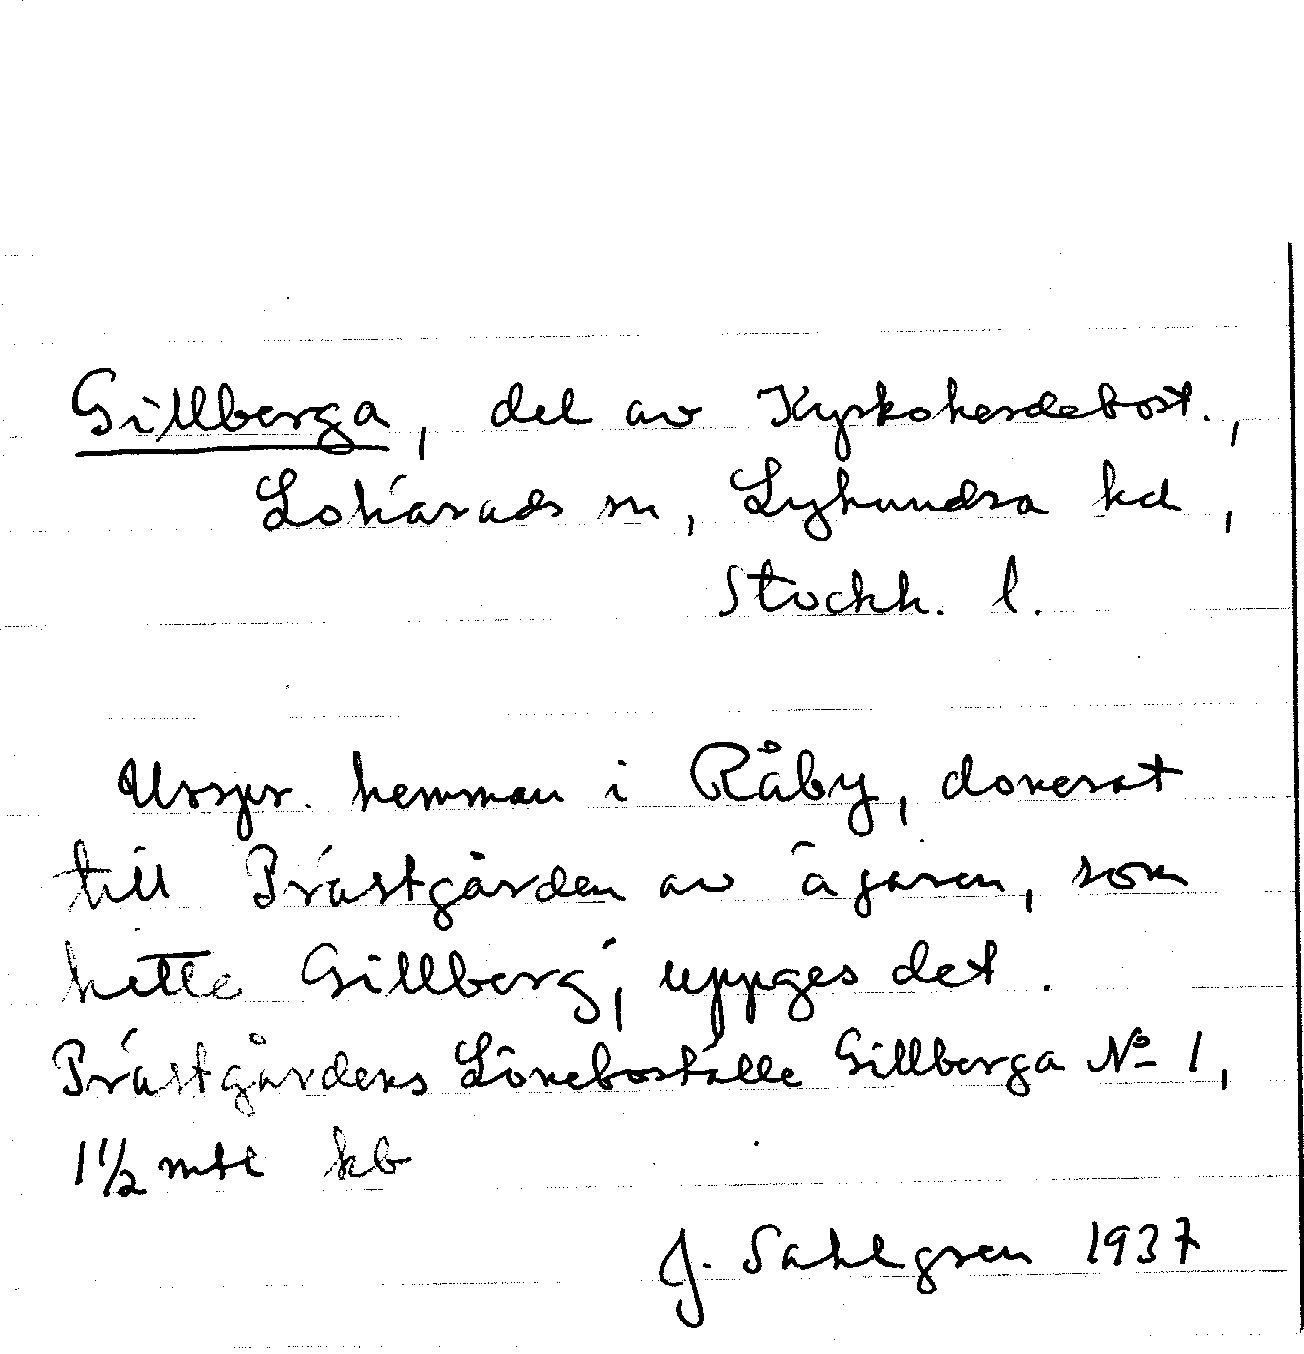 Gillberga, del av Kyrkoherdebost.,
Lohärads sn, Lyhundra hd,
Stockh. l.
Urspr. hemman i Råby, donerat
till Prästgården av ägaren, som
hette Gillberg, uppges det.
Prästgårdens Löneboställe Gillberga No 1,
1 1/2 mtl kb
J. Sahlgren 1937